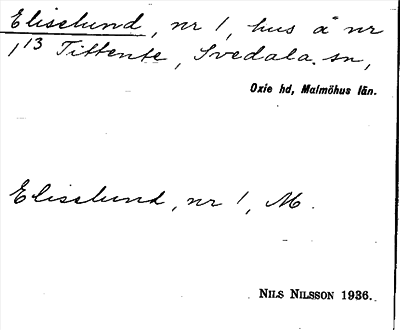 Eliselund, nr 1, hus å nr
1¹³ Tittente, Svedala sn,
Oxie hd, Malmöhus län.
Elisslund, nr 1, M.
NILS NILSSON 1936.